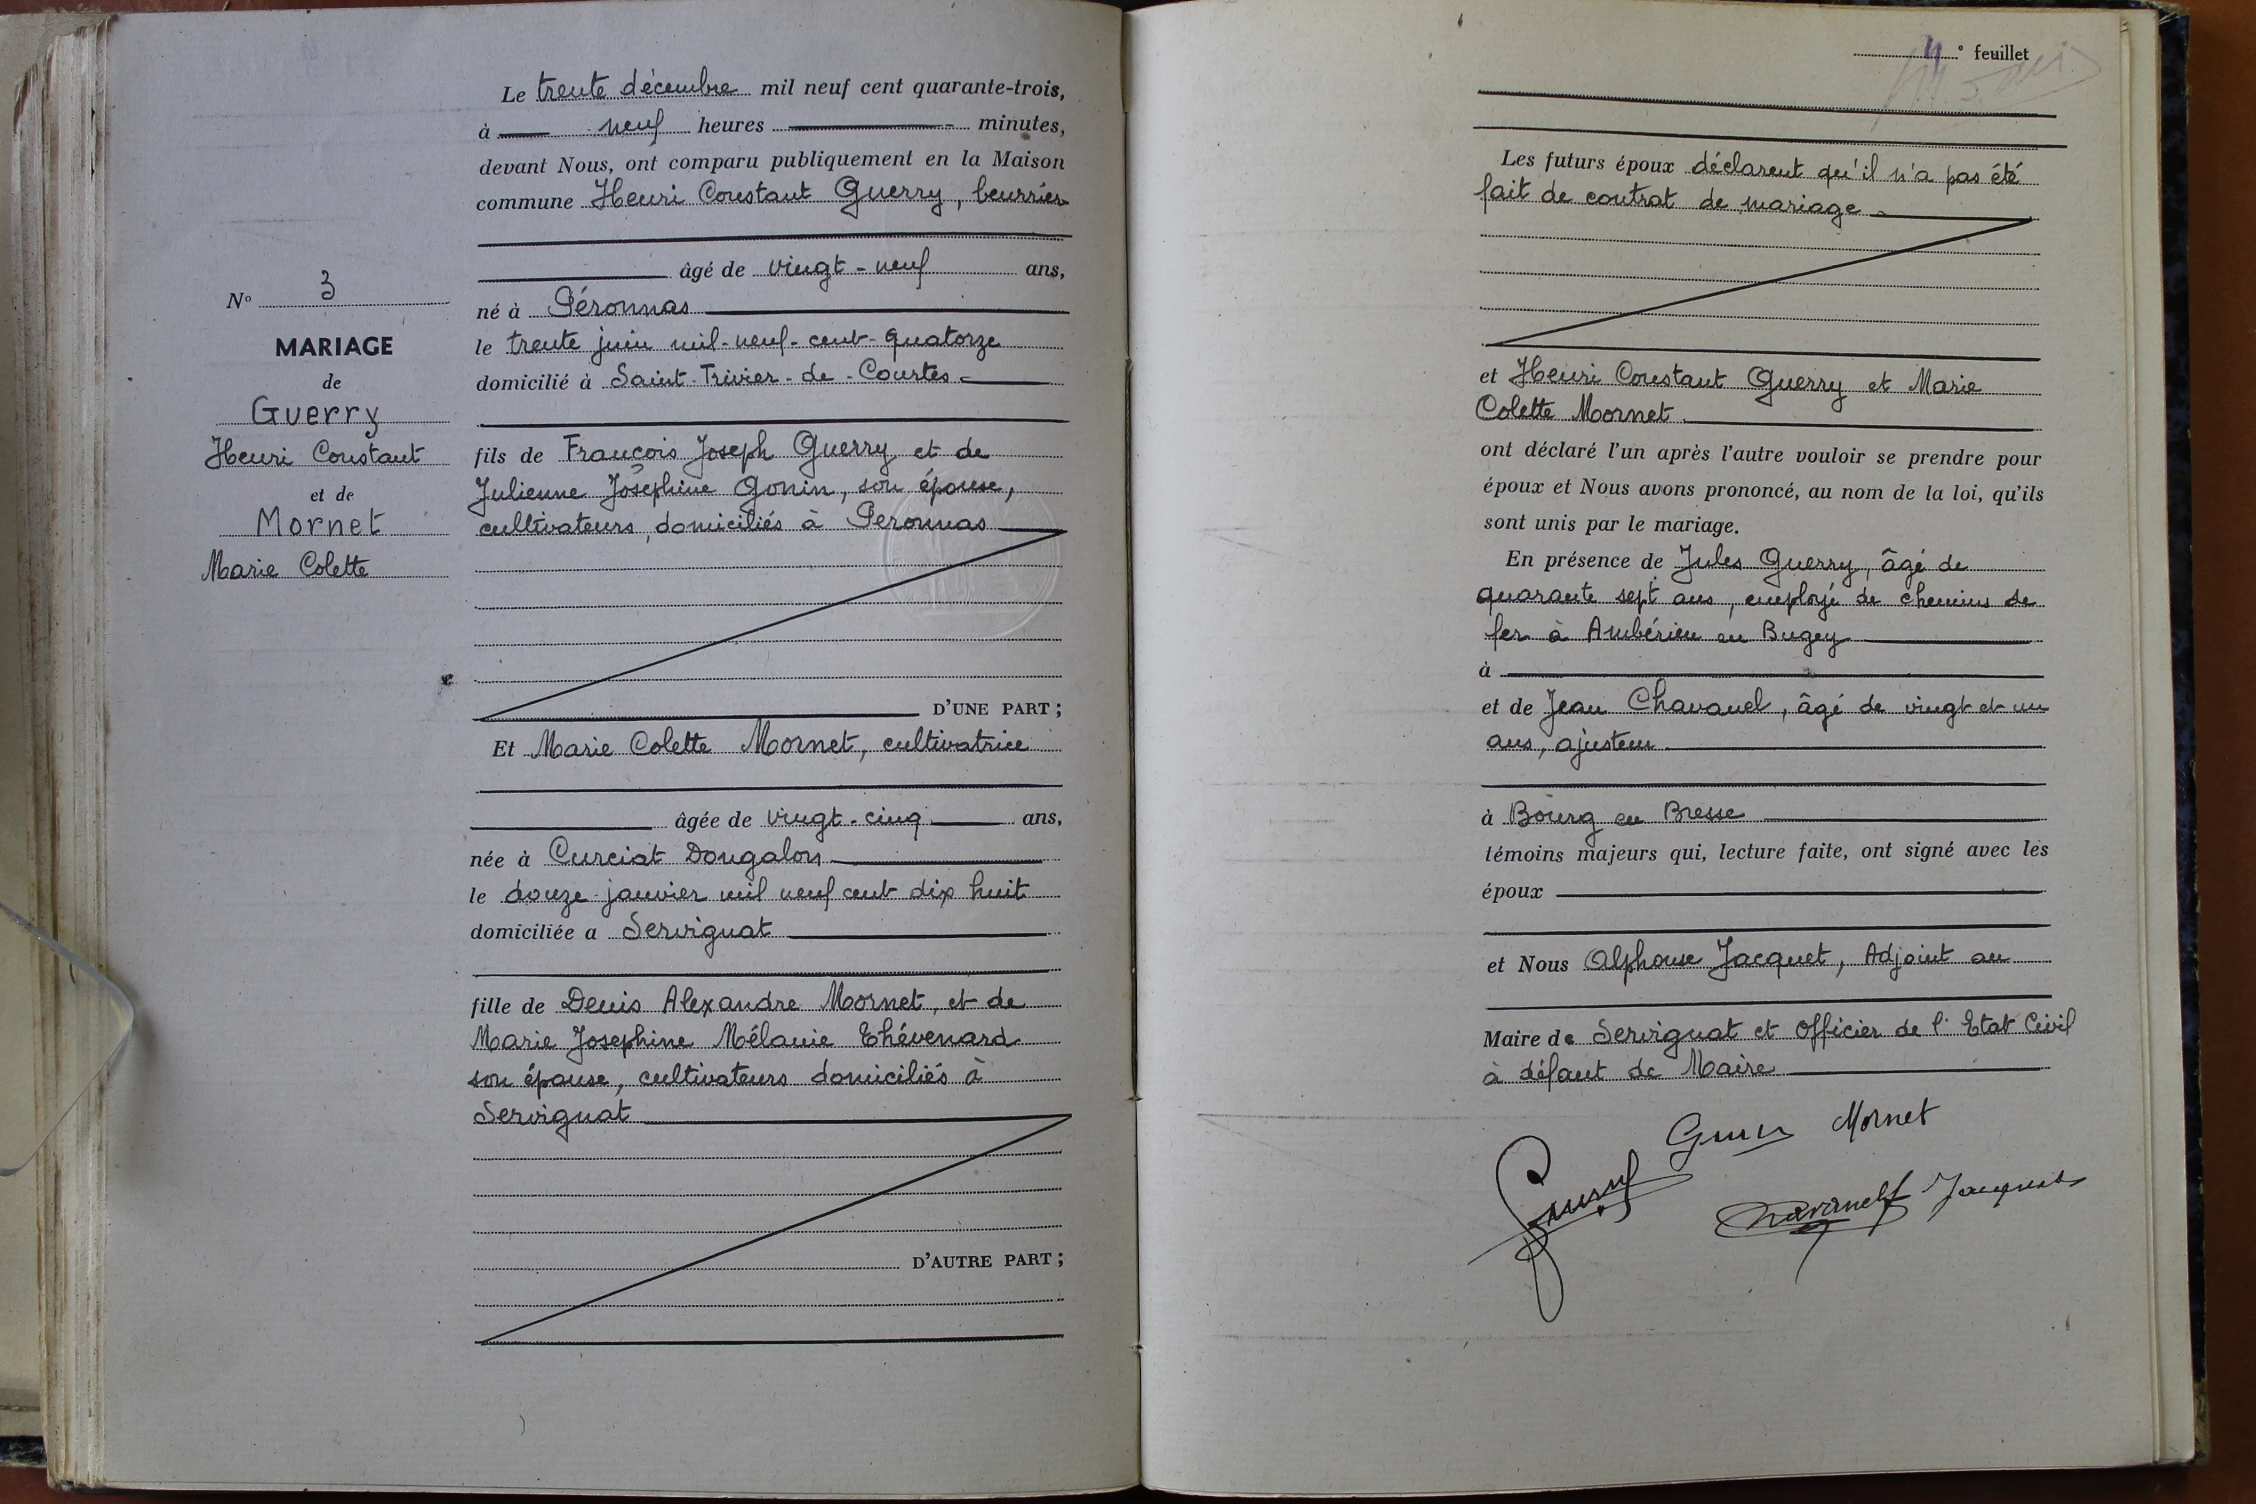 Le trente décembre mil neuf cent quarante-trois,
à neuf heures minutes,
devant Nous, ont comparu publiquement en la Maison
commune Henri Constant Guerry, beurrier
âgé de vingt-neuf ans,
N° 3
né à Péronnas
MARIAGE
le trente juin mil-neuf-cent-quatorze
de
domicilié à Saint-Trivier-de-Courtes
Guerry
Henri Constant
fils de François Joseph Guerry et de
et de
Julienne Joséphine Gonin, son épouse,
Mornet
cultivateurs, domiciliés à Peronnas
Marie Colette
D'UNE PART ;
Et Marie Colette Mornet, cultivatrice
âgée de vingt-cinq ans,
née à Curciat Dongalon
le douze janvier mil neuf cent dix huit
domiciliée a Servignat
fille de Denis Alexandre Mornet, et de
Marie Josephine Mélanie Thévenard
son épouse, cultivateurs domiciliés à
Servignat
D'AUTRE PART ;
4° feuillet
Les futurs époux déclarent qu'il n'a pas été
fait de contrat de mariage
et Henri Constant Guerry et Marie
Colette Mornet
ont déclaré l'un après l'autre vouloir se prendre pour
époux et Nous avons prononcé, au nom de la loi, qu'ils
sont unis par le mariage.
En présence de Jules Guerry, âgé de
quarante sept ans, employé de chemins de
fer à Ambérieu en Bugey
à
et de Jean Chavanel, âgé de vingt et un
ans, ajusteur
à Bourg en Bresse
témoins majeurs qui, lecture faite, ont signé avec les
époux
et Nous Alphonse Jacquet, Adjoint au
Maire de Servignat et Officier de l'Etat Civil
à défaut de Maire
Guerry Mornet
Chavanel Jacquet